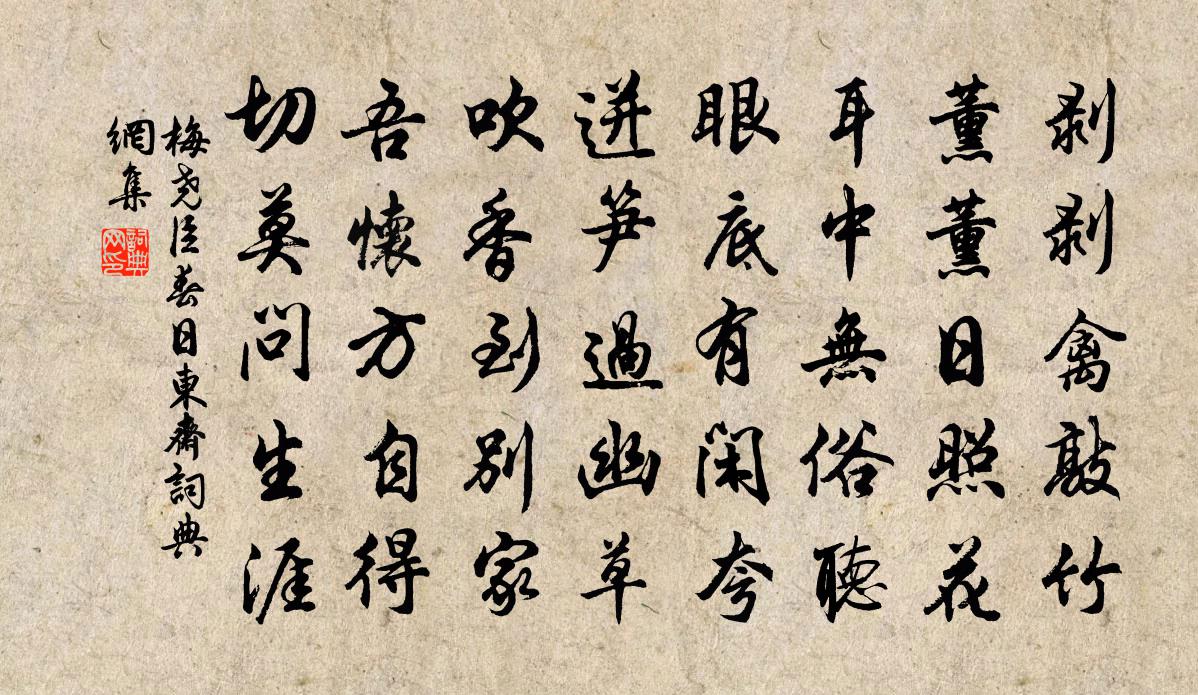 剥剥禽敲竹
薰薰日照花
耳中無俗聽
眼底有閑夸
迸笋過幽草
吹香到别家
吾懷方自得
切莫問生涯
梅尧臣春日東齋詞典
網集
詞典
网印